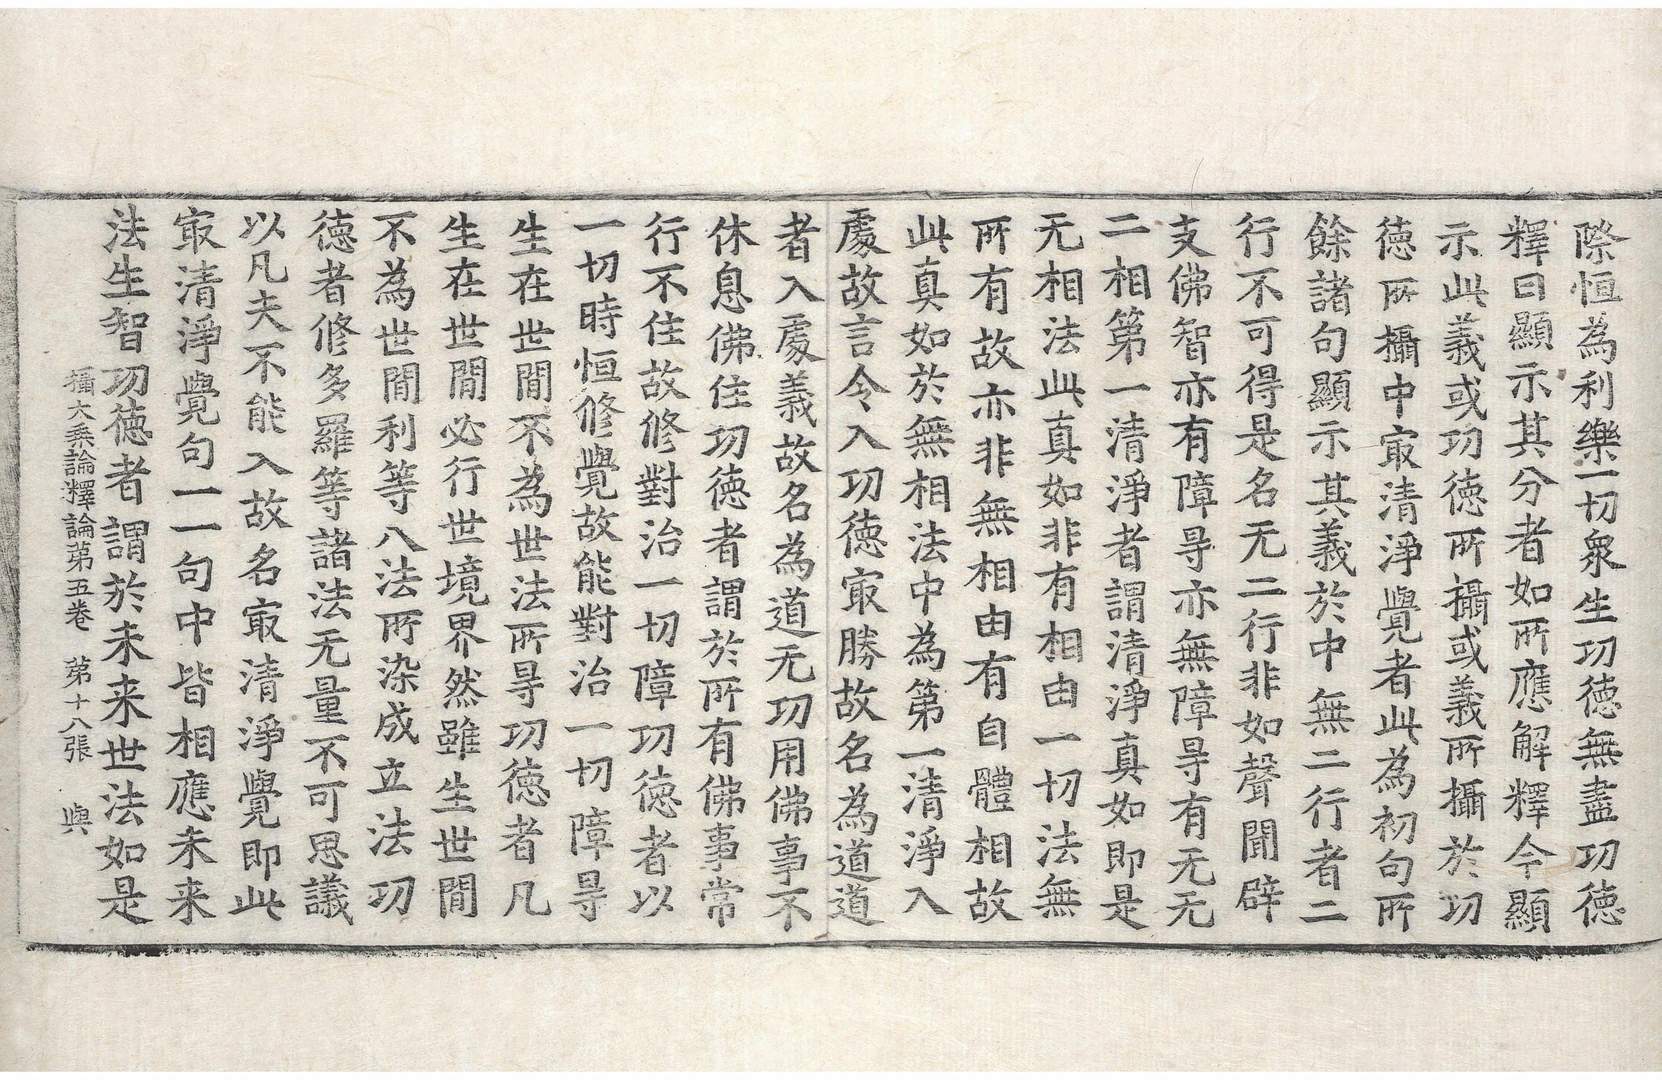 際恒為利樂一切衆生功徳無盡功徳
釋曰顯示其分者如所應解釋今顯
示此義或功徳所攝或義所攝於功
徳所攝中㝡清淨覺者此為初句所
餘諸句顯示其義於中無二行者二
行不可得是名无二行非如聲聞辟
支佛智亦有障㝵亦無障㝵有无无
二相第一清淨者謂清淨真如即是
无相法此真如非有相由一切法無
所有故亦非無相由有自體相故
此真如於無相法中為第一清淨入
處故言令入功徳㝡勝故名為道道
者入處義故名為道无功用佛事不
休息佛住功徳者謂於所有佛事常
行不住故修對治一切障功徳者以
一切時恒修覺故能對治一切障㝵
生在世間不為世法所㝵功徳者凡
生在世間必行世境界然雖生世間
不為世間利等八法所染成立法功
徳者修多羅等諸法无量不可思議
以凡夫不能入故名㝡清淨覺即此
㝡清淨覺句一一句中皆相應未来
法生智功徳者謂於未来世法如是
攝大乘論釋論第五卷　第十八張　與